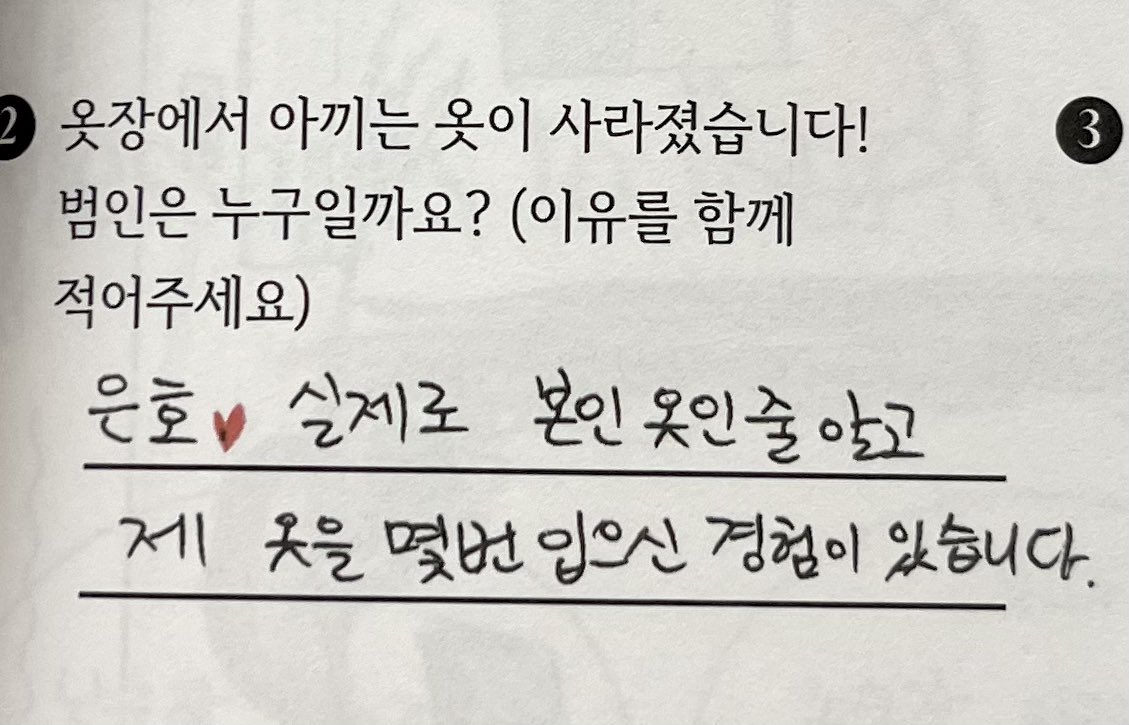 2 옷장에서 아끼는 옷이 사라졌습니다!
범인은 누구일까요? (이유를 함께
적어주세요)
은호♥ 실제로 본인 옷인줄 알고
제 옷을 몇번 입으신 경험이 있습니다.
3